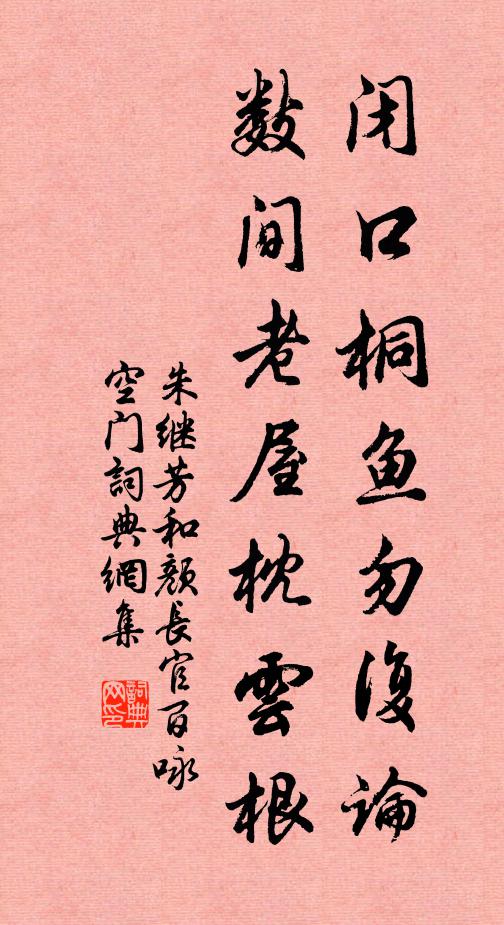 闭口桐鱼勿复論
数间老屋枕雲根
朱继芳和颜長官百咏
空门詞典網集
詞典网印